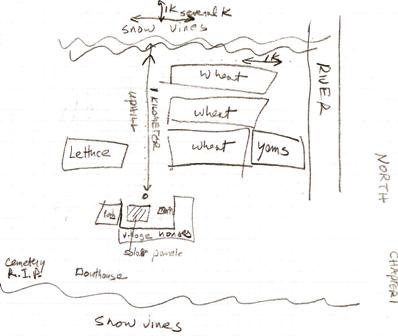 1K several K
snow vines
1K
wheat
RIVER
UPHILL
1 KILOMETER
wheat
Lettuce
wheat
yams
NORTH
village houses
solar panels
Cemetery
R.I.P.
outhouse
CHAPTER 1
snow vines